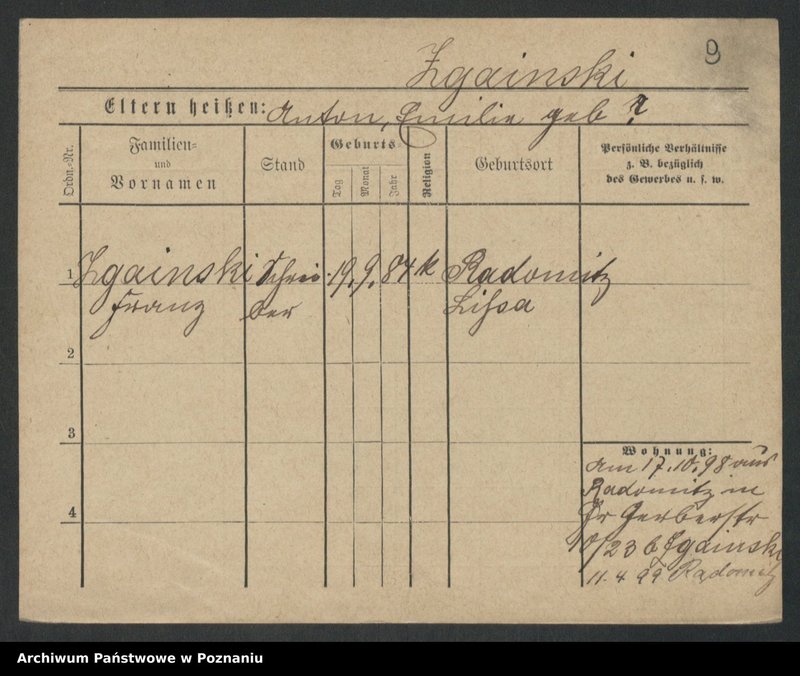 9
Zgainski
Eltern heißen: Anton, Emilie geb ?
Ordn.-Nr.
Familien-
und
Vornamen
Stand
Geburts
Tag
Monat
Jahr
Religion
Geburtsort
Persönliche Verhältnisse
z. B. bezüglich
des Gewerbes u. s. w.
1 Zgainski Schrei- 19. 9. 84 k Radomitz
Franz ber Lissa
2
3
4
Wohnung:
Am 17.10.98 aus
Radomitz in
Gr Gerberstr
10/23 b Zgainski
11.4 99 Radomitz
Archiwum Państwowe w Poznaniu